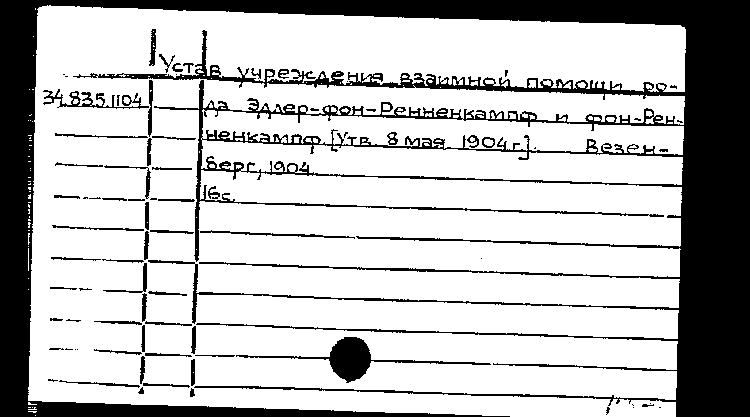 Устав учреждения взаимной помощи ро-
34.835.1104 да Эдлер-фон-Ренненкампф и фон-Рен-
ненкампф. [Утв. 8 мая 1904 г.]. Везен-
берг, 1904.
16с.